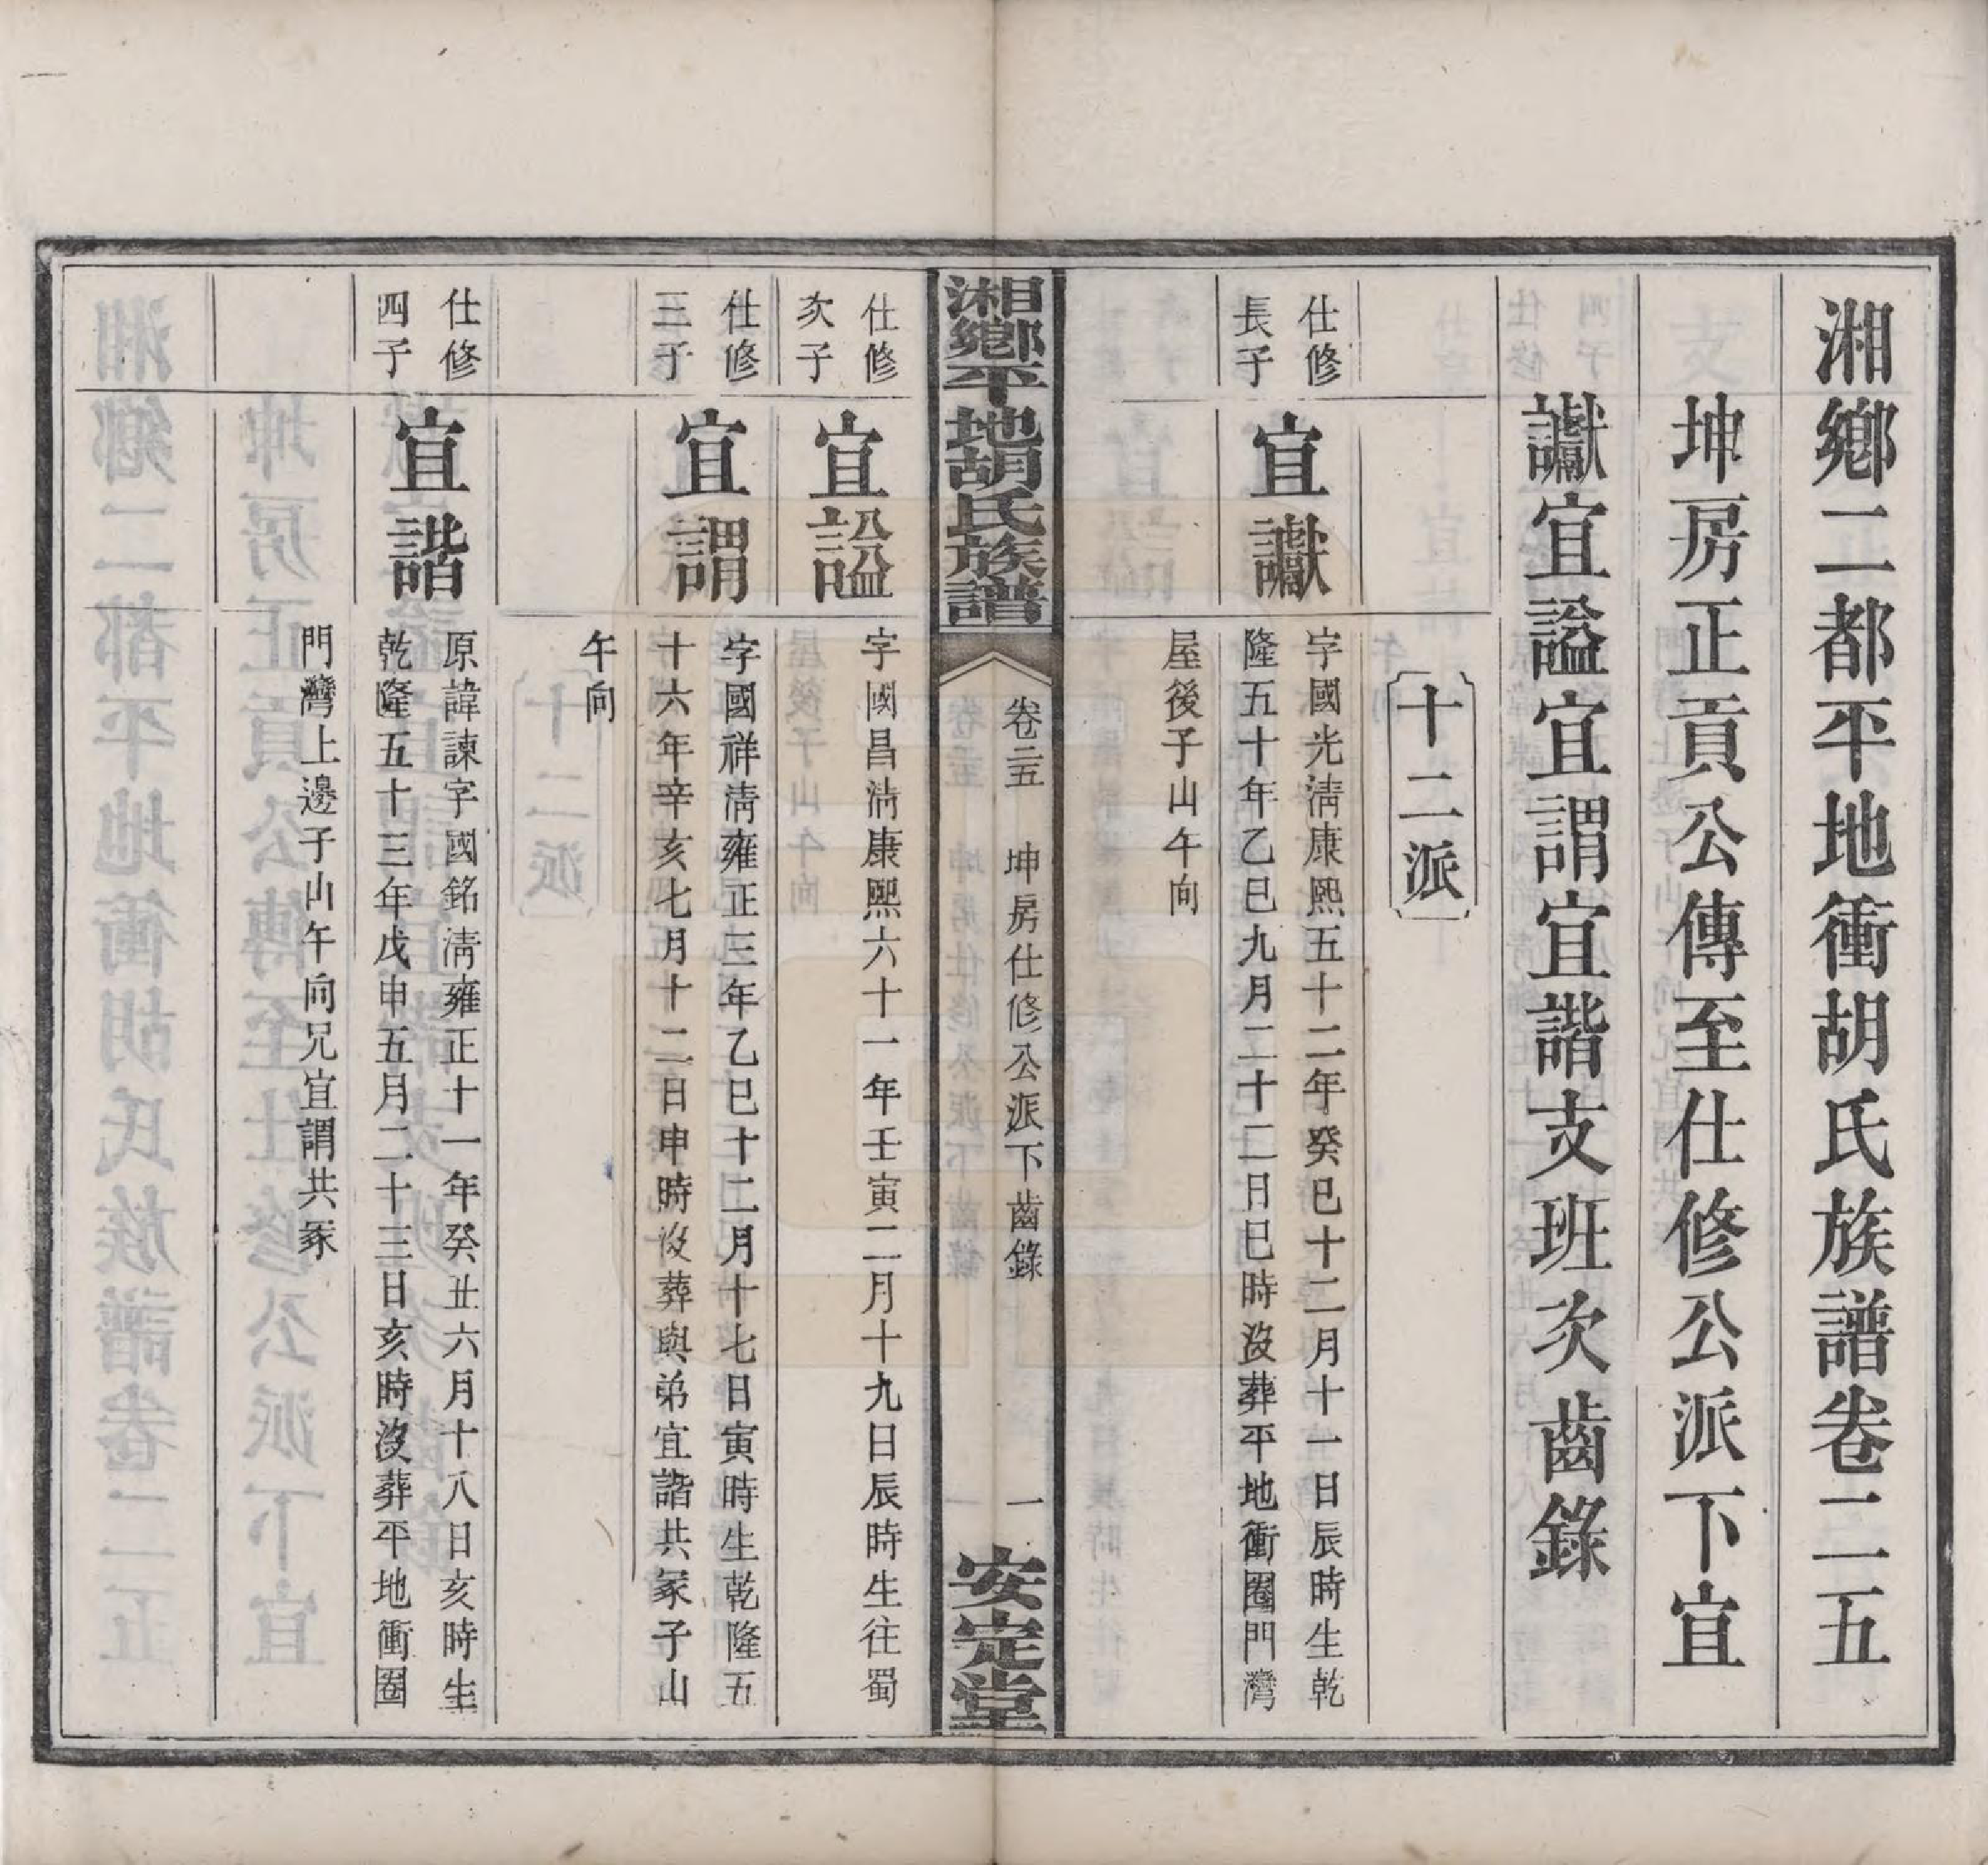 湘鄉二都平地衝胡氏族譜卷二五
坤房正貢公傳至仕修公派下宜
讞宜謚宜謂宜諧支班次齒錄
十二派
仕修
長子
宜讞
字國光清康熙五十二年癸巳十二月十一日辰時生乾
隆五十年乙巳九月二十二日巳時沒葬平地衝圈門灣
屋後子山午向
湘鄉平地胡氏族譜
卷二五
坤房仕修公派下齒錄
一
安定堂
仕修
次子
宜謚
字國昌清康熙六十一年壬寅二月十九日辰時生往蜀
仕修
三子
宜謂
字國祥清雍正三年乙巳十二月十七日寅時生乾隆五
十六年辛亥七月十二日申時沒葬與弟宜諧共冢子山
午向
仕修
四子
宜諧
原諱諫字國銘清雍正十一年癸丑六月十八日亥時生
乾隆五十三年戊申五月二十三日亥時沒葬平地衝圈
門灣上邊子山午向兄宜謂共冢